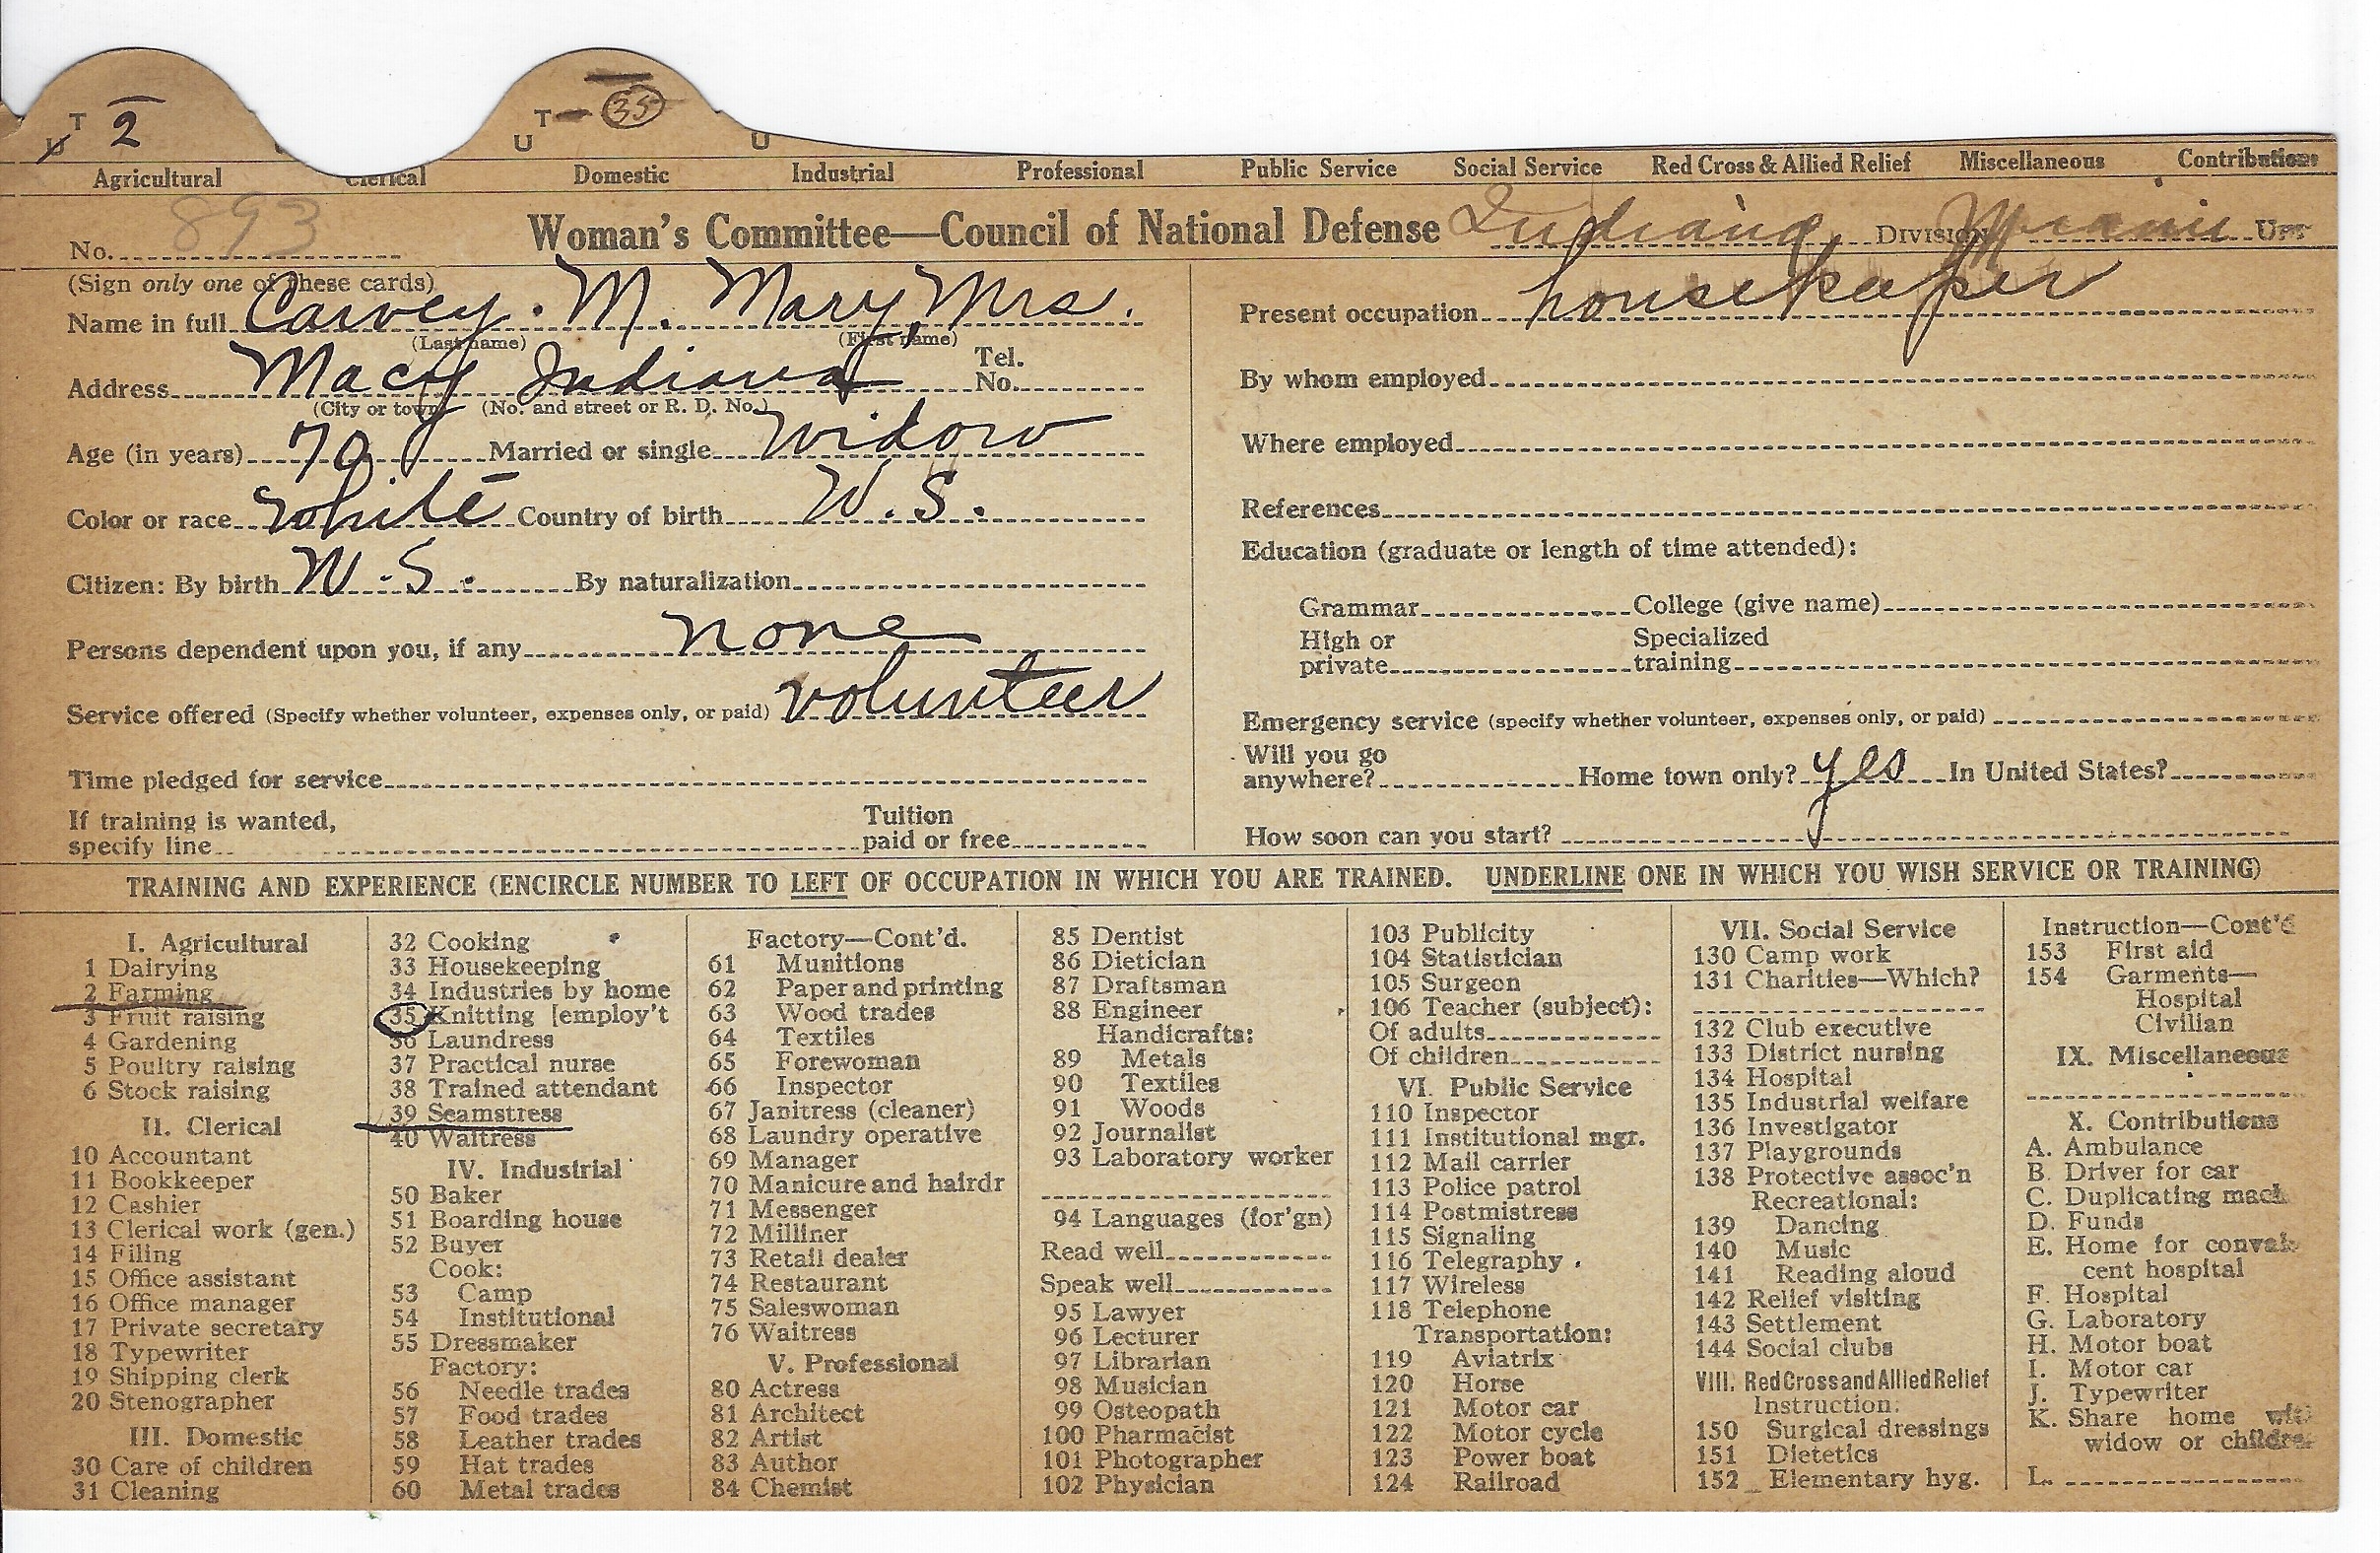 T 2 T 35
U U U
Agricultural Clerical Domestic Industrial Professional Public Service Social Service Red Cross & Allied Relief Miscellaneous Contributions
No. 893 Woman's Committee—Council of National Defense Indiana Division Miami Unit
(Sign only one of these cards)
Name in full Carvey. M. Mary, Mrs.
(Last name) (First name)
Address Macy Indiana Tel. No.
(City or town) (No. and street or R. D. No.)
Age (in years) 70 Married or single Widow
Color or race White Country of birth U.S.
Citizen: By birth U.S. By naturalization
Persons dependent upon you, if any none
Service offered (Specify whether volunteer, expenses only, or paid) volunteer
Time pledged for service
If training is wanted, specify line Tuition paid or free
Present occupation housekeeper
By whom employed
Where employed
References
Education (graduate or length of time attended):
Grammar College (give name)
High or private Specialized training
Emergency service (specify whether volunteer, expenses only, or paid)
Will you go anywhere? Home town only? yes In United States?
How soon can you start?
TRAINING AND EXPERIENCE (ENCIRCLE NUMBER TO LEFT OF OCCUPATION IN WHICH YOU ARE TRAINED. UNDERLINE ONE IN WHICH YOU WISH SERVICE OR TRAINING)
I. Agricultural
1 Dairying
2 Farming
3 Fruit raising
4 Gardening
5 Poultry raising
6 Stock raising
II. Clerical
10 Accountant
11 Bookkeeper
12 Cashier
13 Clerical work (gen.)
14 Filing
15 Office assistant
16 Office manager
17 Private secretary
18 Typewriter
19 Shipping clerk
20 Stenographer
III. Domestic
30 Care of children
31 Cleaning
32 Cooking
33 Housekeeping
34 Industries by home
35 Knitting [employ't
36 Laundress
37 Practical nurse
38 Trained attendant
39 Seamstress
40 Waitress
IV. Industrial
50 Baker
51 Boarding house
52 Buyer
Cook:
53 Camp
54 Institutional
55 Dressmaker
Factory:
56 Needle trades
57 Food trades
58 Leather trades
59 Hat trades
60 Metal trades
Factory—Cont'd.
61 Munitions
62 Paper and printing
63 Wood trades
64 Textiles
65 Forewoman
66 Inspector
67 Janitress (cleaner)
68 Laundry operative
69 Manager
70 Manicure and hairdr
71 Messenger
72 Milliner
73 Retail dealer
74 Restaurant
75 Saleswoman
76 Waitress
V. Professional
80 Actress
81 Architect
82 Artist
83 Author
84 Chemist
85 Dentist
86 Dietician
87 Draftsman
88 Engineer
Handicrafts:
89 Metals
90 Textiles
91 Woods
92 Journalist
93 Laboratory worker
94 Languages (for'gn)
Read well
Speak well
95 Lawyer
96 Lecturer
97 Librarian
98 Musician
99 Osteopath
100 Pharmacist
101 Photographer
102 Physician
103 Publicity
104 Statistician
105 Surgeon
106 Teacher (subject):
Of adults
Of children
VI. Public Service
110 Inspector
111 Institutional mgr.
112 Mail carrier
113 Police patrol
114 Postmistress
115 Signaling
116 Telegraphy
117 Wireless
118 Telephone
Transportation:
119 Aviatrix
120 Horse
121 Motor car
122 Motor cycle
123 Power boat
124 Railroad
VII. Social Service
130 Camp work
131 Charities—Which?
132 Club executive
133 District nursing
134 Hospital
135 Industrial welfare
136 Investigator
137 Playgrounds
138 Protective assoc'n
Recreational:
139 Dancing
140 Music
141 Reading aloud
142 Relief visiting
143 Settlement
144 Social clubs
VIII. Red Cross and Allied Relief
Instruction:
150 Surgical dressings
151 Dietetics
152 Elementary hyg.
Instruction—Cont'd
153 First aid
154 Garments—
Hospital
Civilian
IX. Miscellaneous
X. Contributions
A. Ambulance
B. Driver for car
C. Duplicating mach
D. Funds
E. Home for convales
cent hospital
F. Hospital
G. Laboratory
H. Motor boat
I. Motor car
J. Typewriter
K. Share home with
widow or children
L.